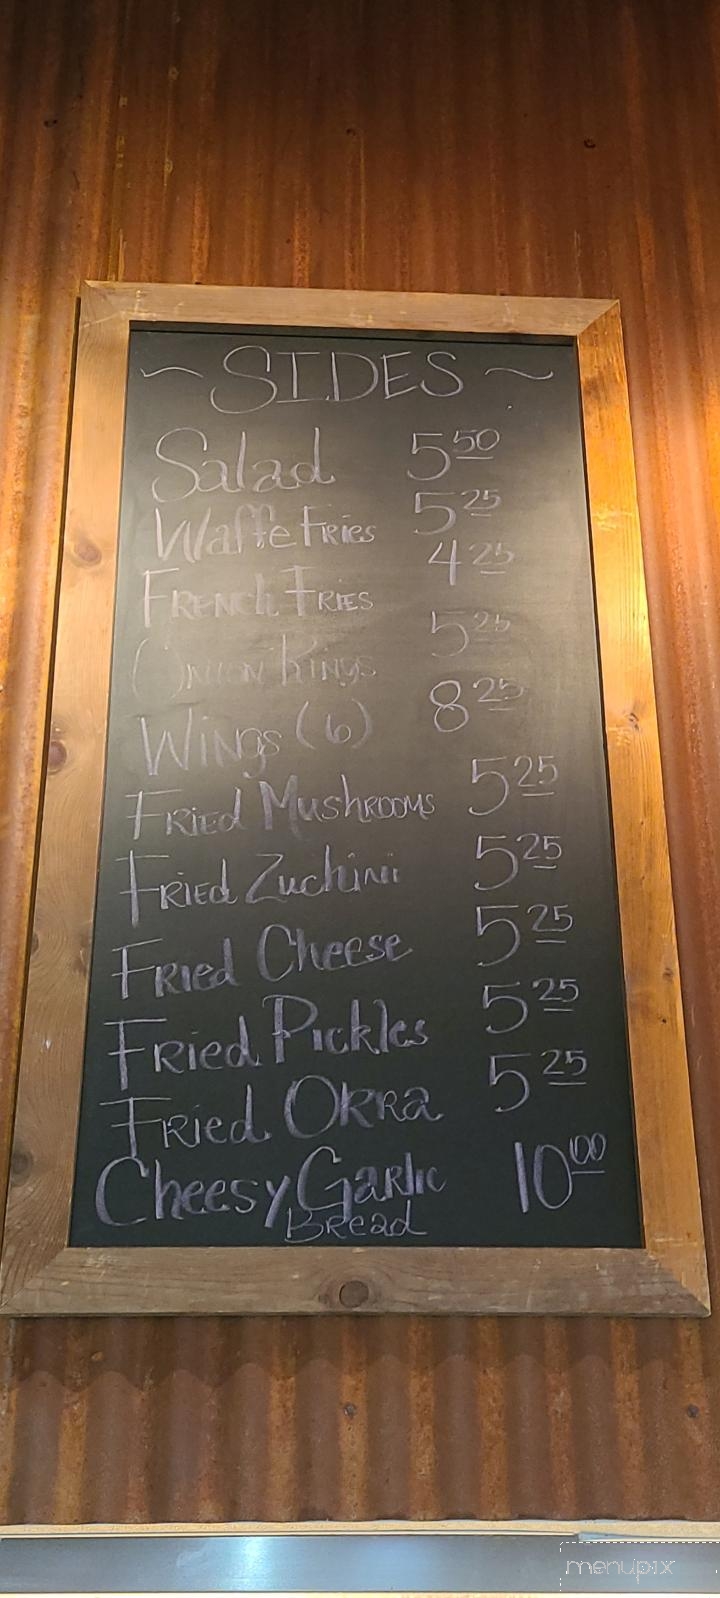 ~ SIDES ~
Salad 5 50
Waffe Fries 5 25
French Fries 4 25
Onion Rings 5 25
Wings (6) 8 25
Fried Mushrooms 5 25
Fried Zuchini 5 25
Fried Cheese 5 25
Fried Pickles 5 25
Fried Okra 5 25
Cheesy Garlic 10 00
Bread
menupix